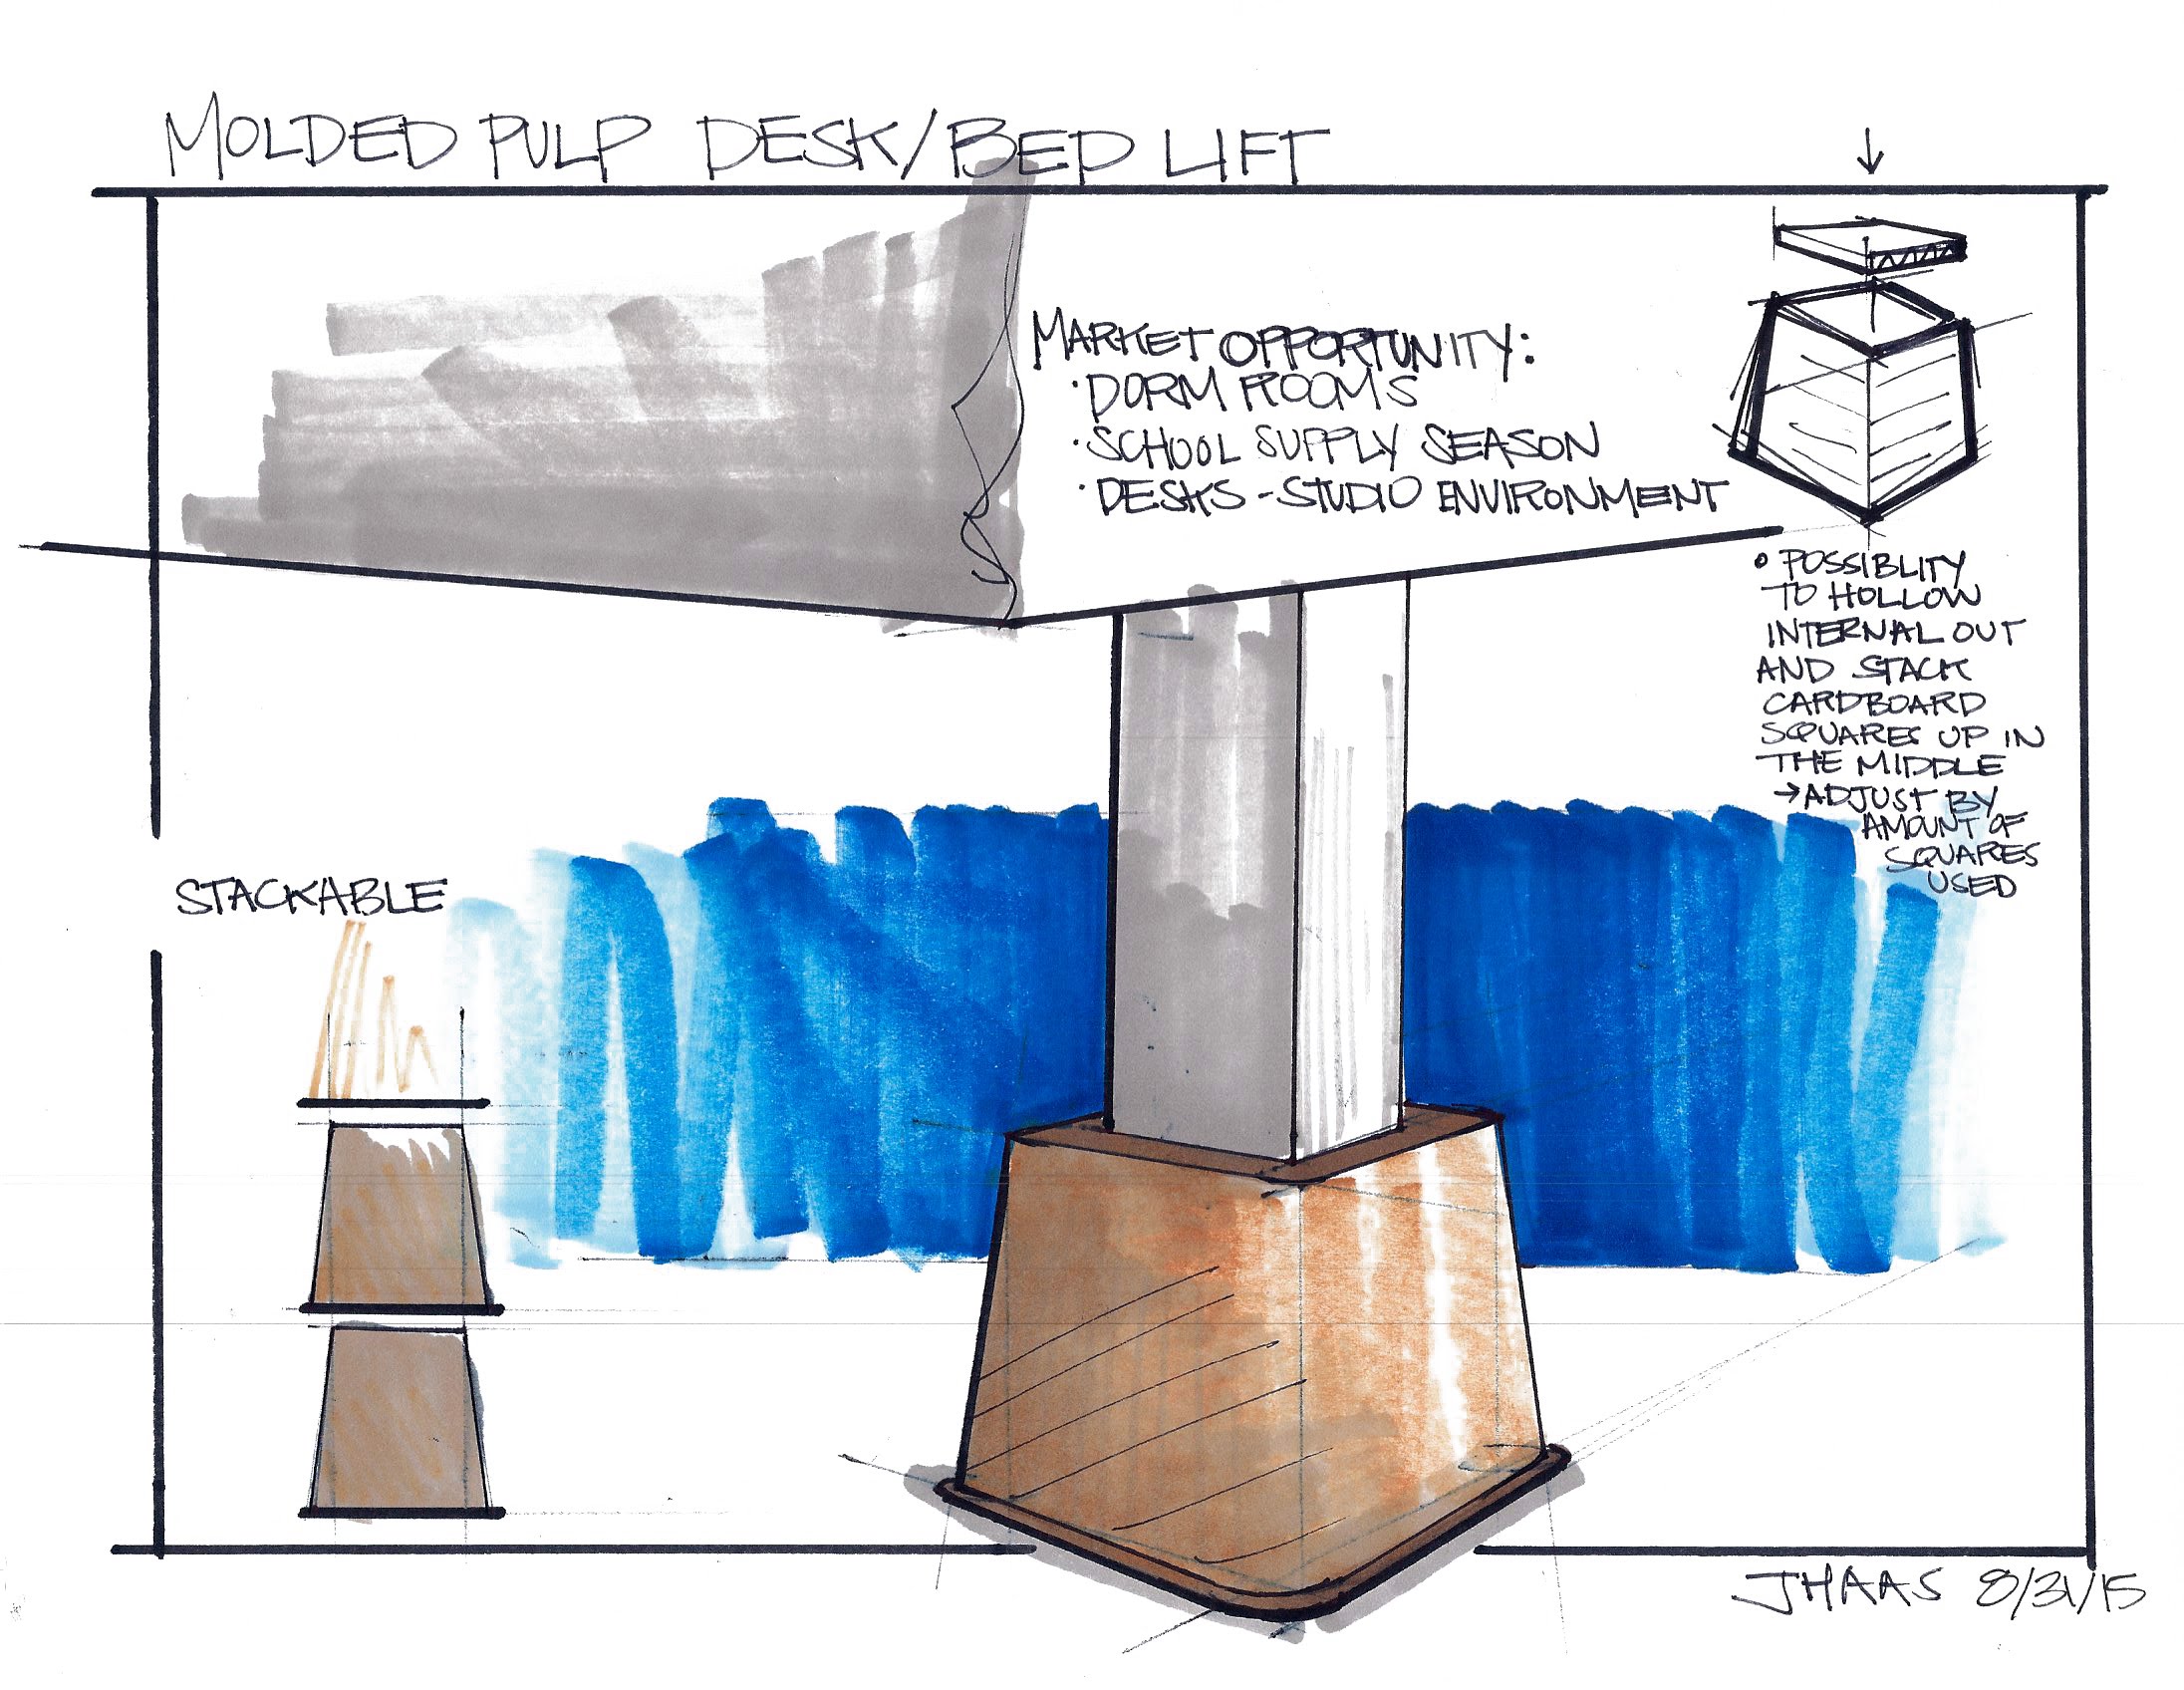 MOLDED PULP DESK/BED LIFT
MARKET OPPORTUNITY:
·DORM ROOMS
·SCHOOL SUPPLY SEASON
·DESKS - STUDIO ENVIRONMENT
• POSSIBLITY
TO HOLLOW
INTERNAL OUT
AND STACK
CARDBOARD
SQUARES UP IN
THE MIDDLE
→ADJUST BY
AMOUNT OF
SQUARES
USED
STACKABLE
JHAAS 8/31/15